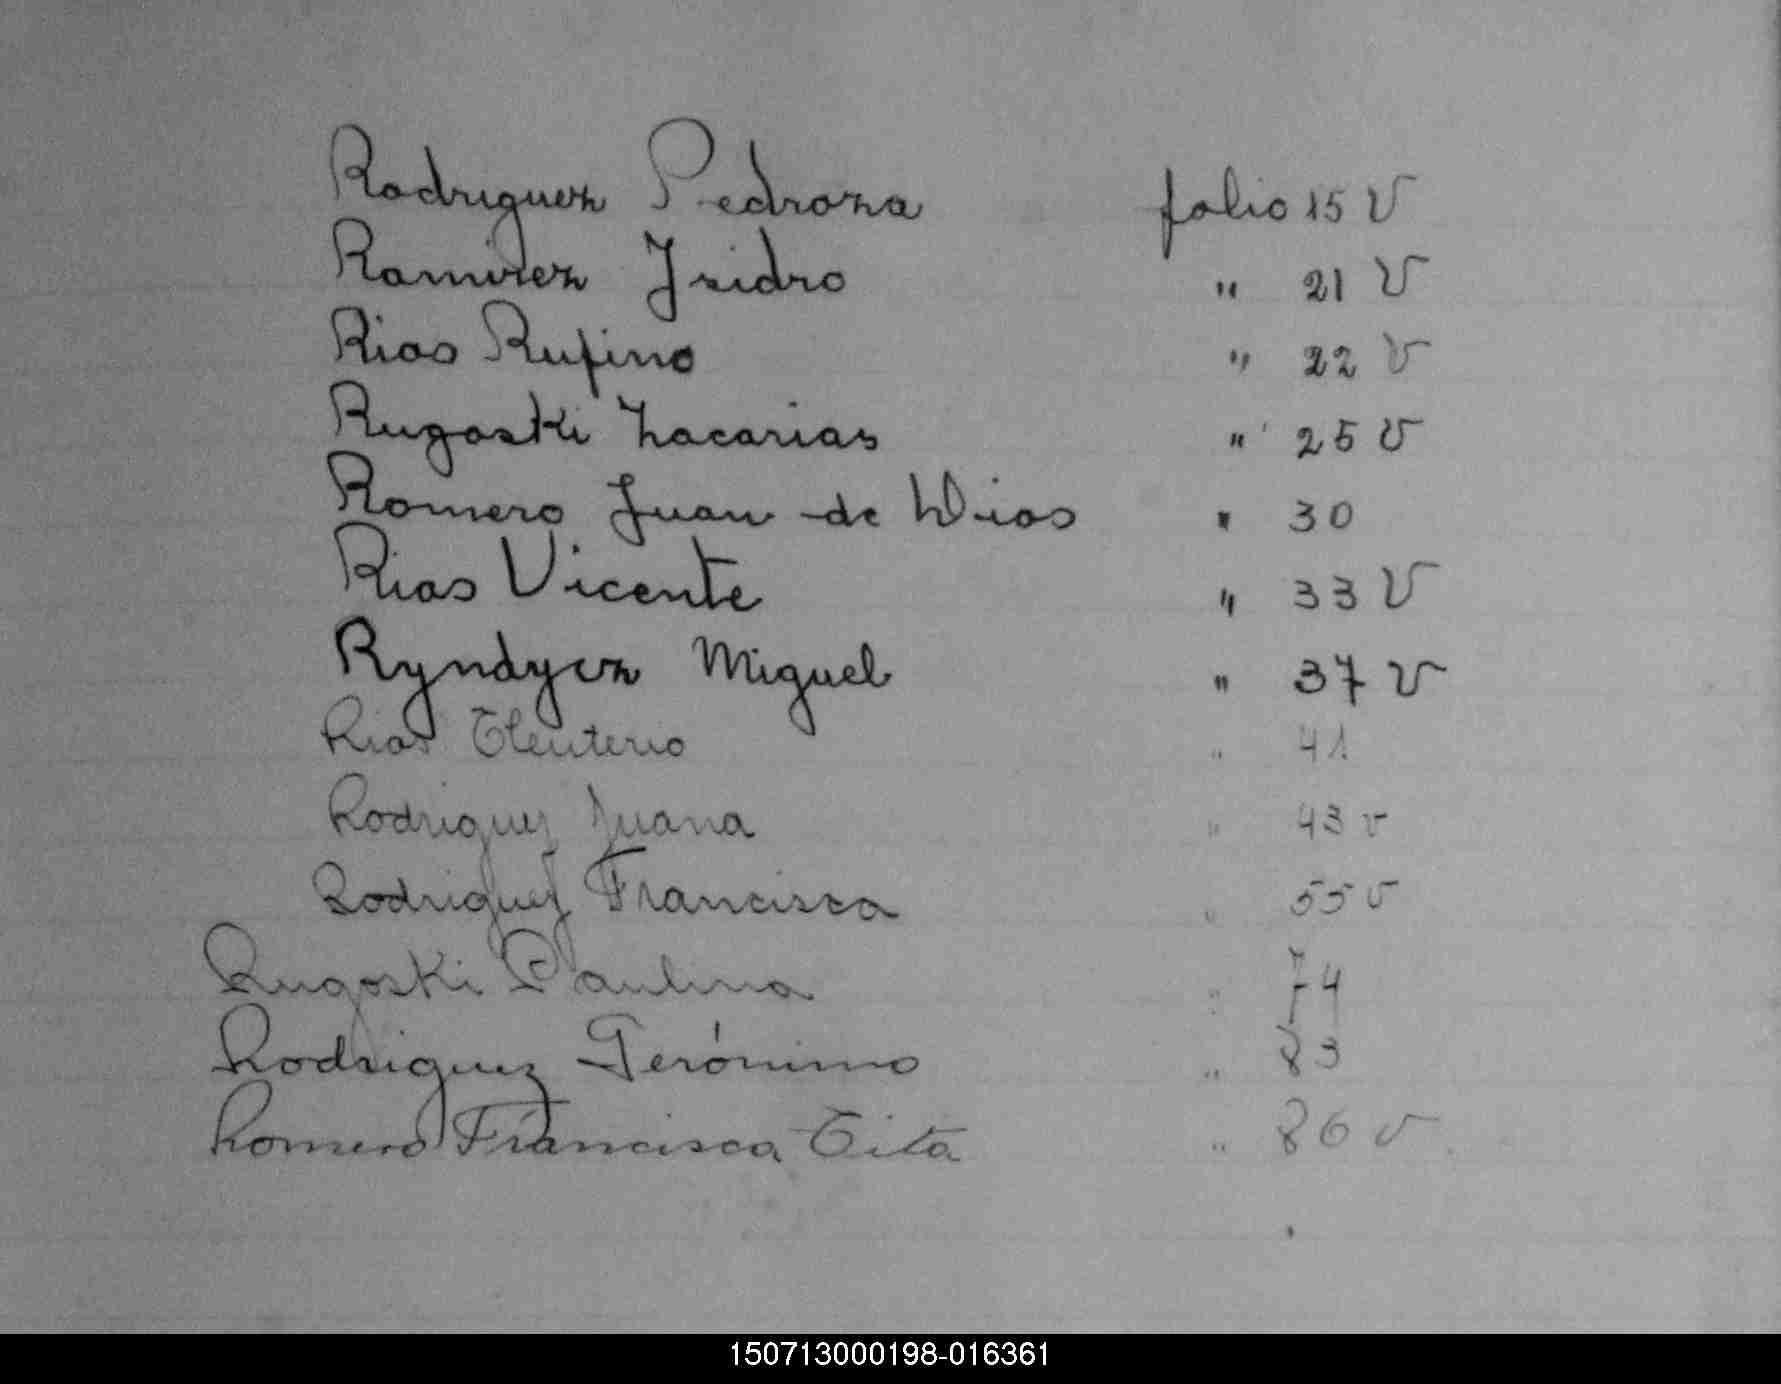 Rodriguez Pedroza folio 15 V
Ramirez Isidro " 21 V
Rios Rufino " 22 V
Rugoski Zacarias " 25 V
Romero Juan de Dios " 30
Rios Vicente " 33 V
Ryndycz Miguel " 37 V
Rios Eleuterio " 41
Rodriguez Juana " 43 v
Rodriguez Francisca " 55 v
Rugoski Paulina " 74
Rodriguez Gerónimo " 83
Romero Francisca Tita " 86 v
150713000198-016361